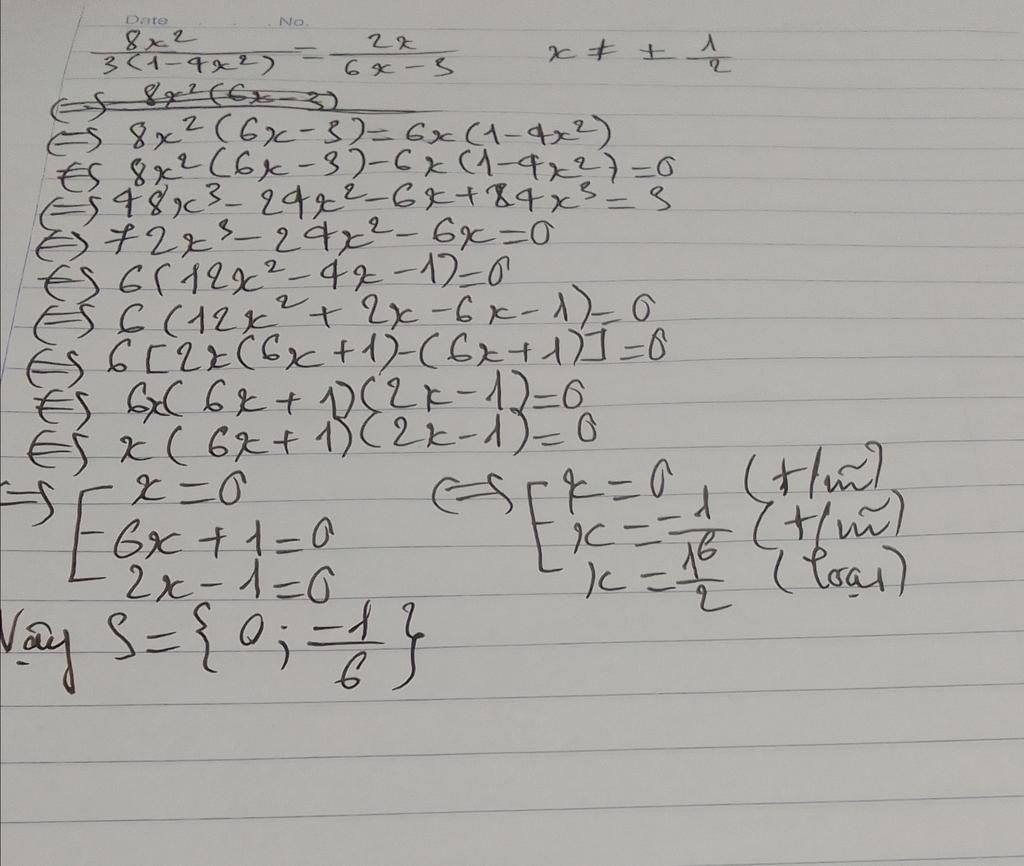 Date No.
8x²/3(1-4x²) = 2x/6x-3 x ≠ ± 1/2
⇔ 8x²(6x-3)
⇔ 8x²(6x-3)=6x(1-4x²)
⇔ 8x²(6x-3)-6x(1-4x²)=0
⇔ 48x³-24x²-6x+24x³=0
⇔ 72x³-24x²-6x=0
⇔ 6(12x²-4x-1)=0
⇔ 6(12x²+2x-6x-1)=0
⇔ 6[2x(6x+1)-(6x+1)]=0
⇔ 6x(6x+1)(2x-1)=0
⇔ x(6x+1)(2x-1)=0
⇔ [ x=0 ⇔ [ x=0 (t/m)
6x+1=0 x=-1/6 (t/m)
2x-1=0 x=1/2 (loại)
Vậy S={0; -1/6}